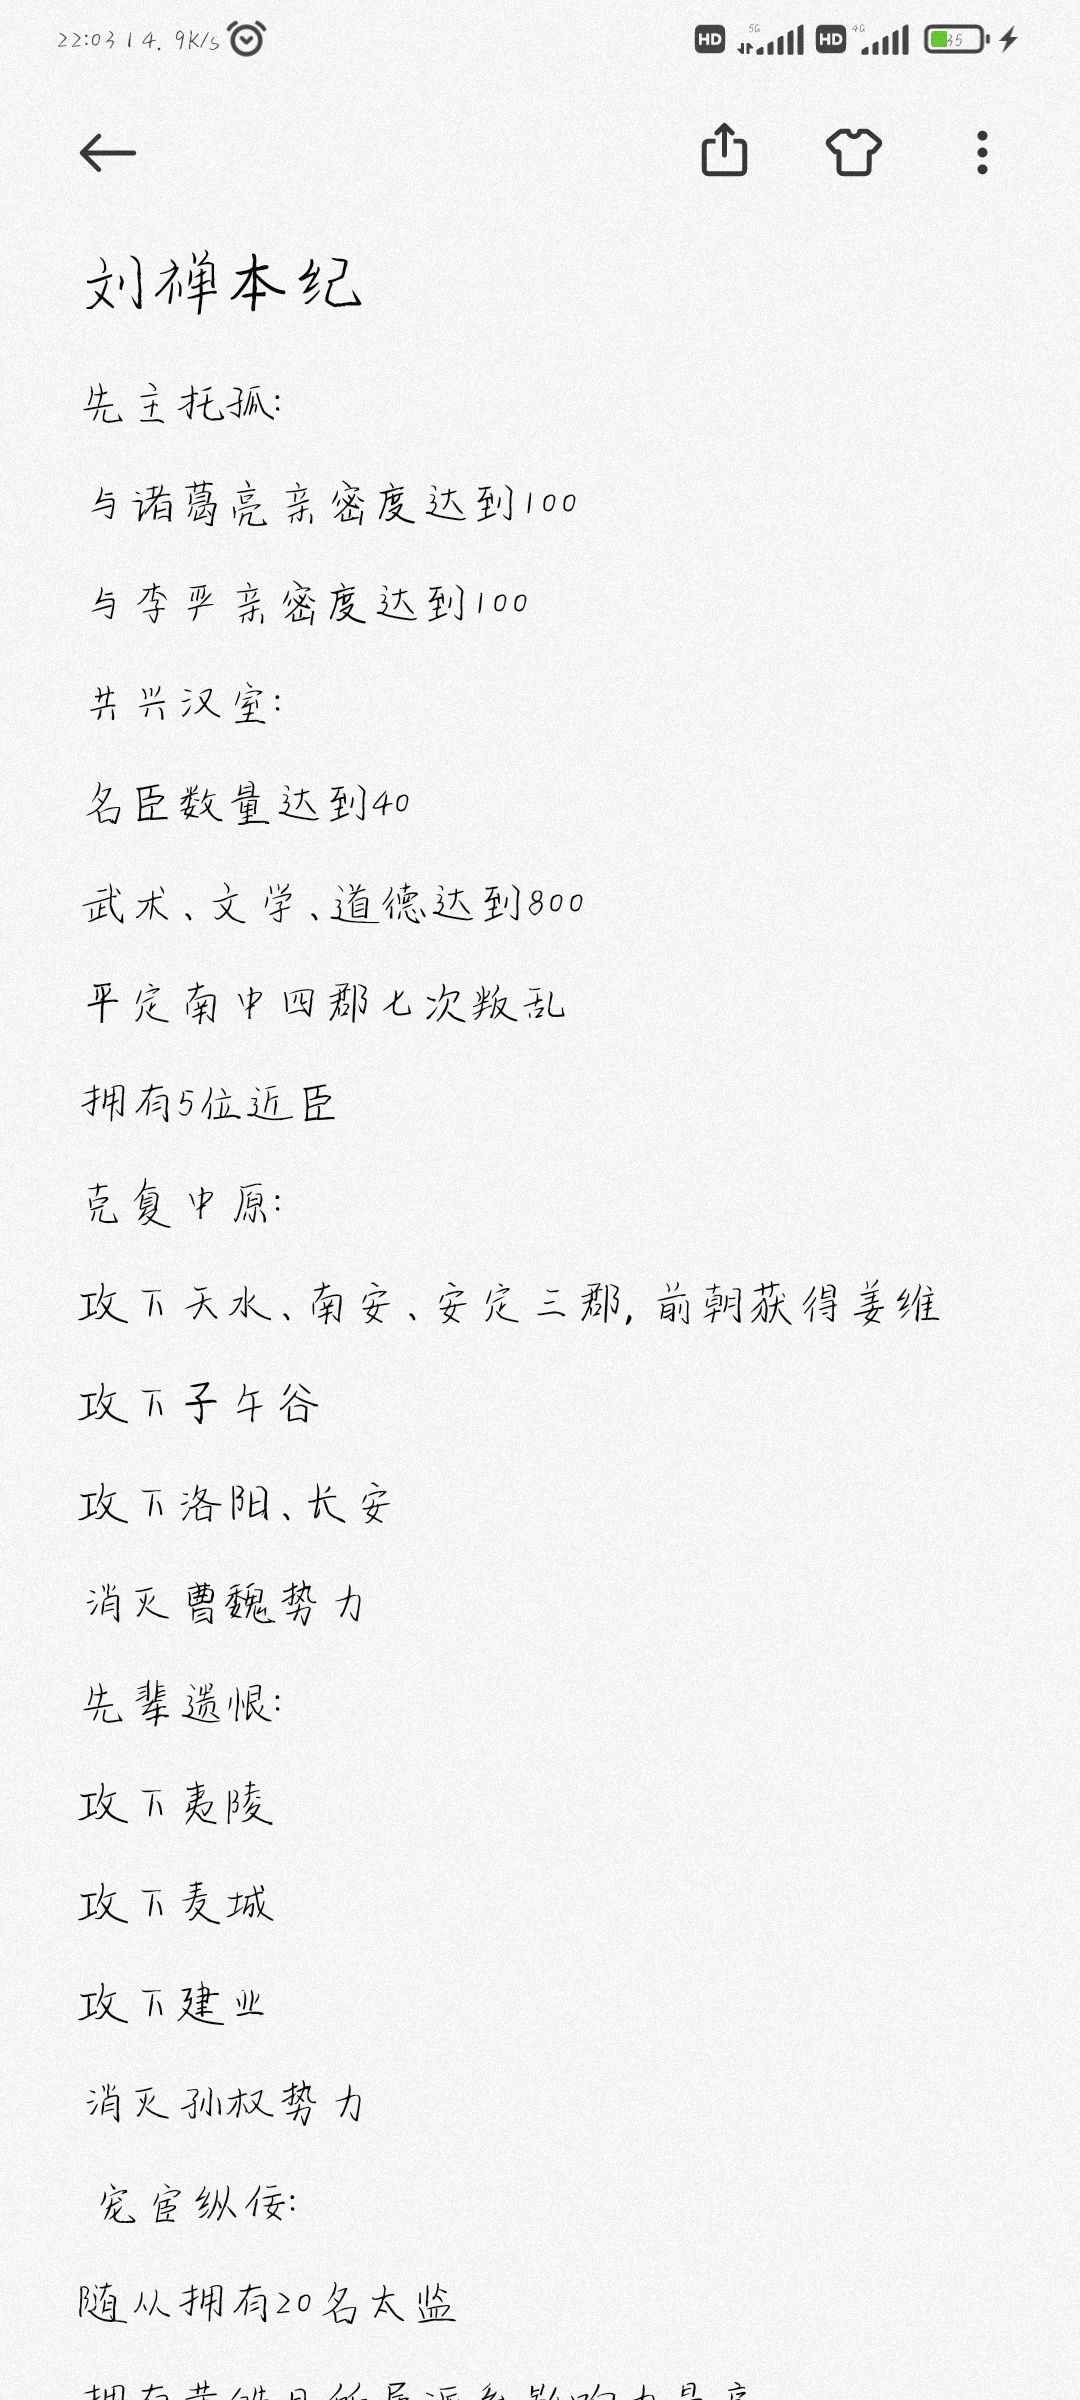 22:03 | 4.9K/s
HD 5G HD 4G 35
刘禅本纪
先主托孤:
与诸葛亮亲密度达到100
与李严亲密度达到100
共兴汉室:
名臣数量达到40
武术、文学、道德达到800
平定南中四郡七次叛乱
拥有5位近臣
克复中原:
攻下天水、南安、安定三郡,前朝获得姜维
攻下子午谷
攻下洛阳、长安
消灭曹魏势力
先辈遗恨:
攻下夷陵
攻下麦城
攻下建业
消灭孙权势力
宠宦纵佞:
随从拥有20名太监